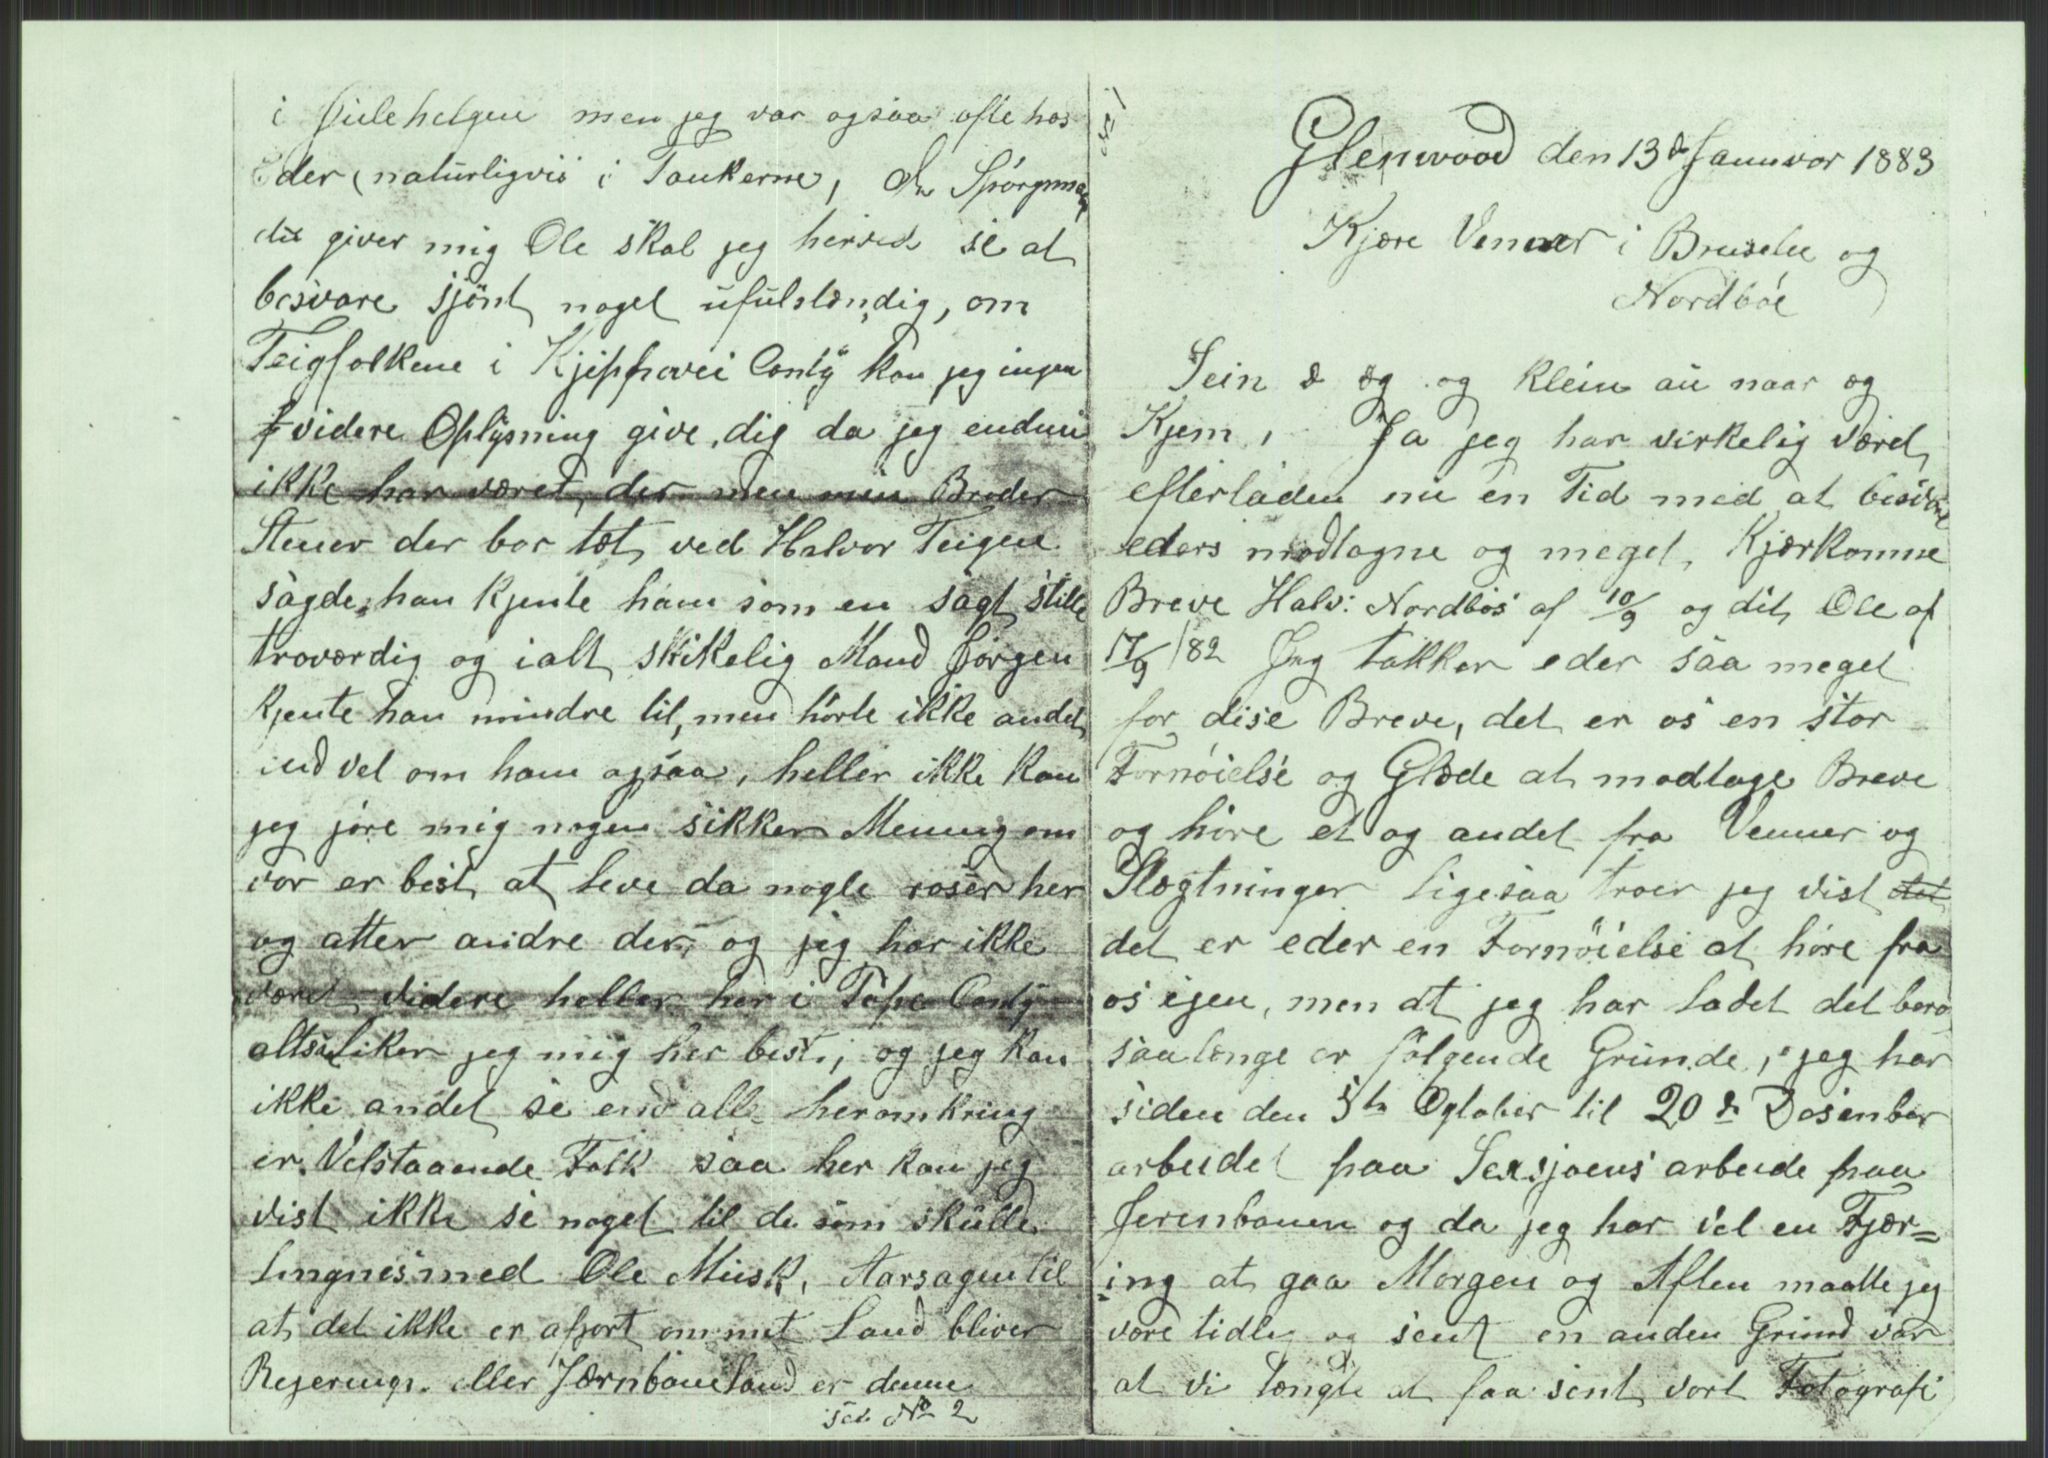 i Julehelgen men jeg var ogsaa ofte hos
Eder (naturligvis i Tankerne, De Spörgsmaal
du giver mig Ole skal jeg herved se at
besvare sjönt noget ufulstændig, om
Teigfolkene i Kjippevei Conty kan jeg ingen
videre Oplysning give, dig da jeg endnu
ikke har været, der men min Broder
Stener der bor tæt ved Halvor Teigen
sagde, han kjente ham som en sagt stille
troværdig og i alt skikelig Mand Jörgen
kjente han mindre til, men hörte ikke andet
end vel om ham ogsaa, heller ikke kan
jeg jöre mig nogen sikker Mening om
vor er best, at leve da nogle roser her
og atter andre der, og jeg har ikke
været videre heller her i Pope Conty
altsaa liker jeg mig her best, og jeg kan
ikke andet se end alle heromkring
er Velstaaende Folk saa her kan jeg
vist ikke se noget til de som skulle
lingnes med Ole Musk, Aarsagen til
at det ikke er aport om mit Land bliver
Regerings. eller Jærnbane land er denne
se No 2
Glenwood den 13de Januvar 1883
Kjære Venner i Bruselie og
Nordböe
Sein æ æg og klein au naar æg
Kjem, Ja jeg har virkelig været
efterladen nu en Tid med at besvare
eders modtagne og meget Kjærkomne
Breve Halv: Nordbös af 10/9 og dit Ole af
17/9 /82 Jeg takker eder saa meget
for dise Breve, det er os en stor
Fornöielse og Glæde at modtage Breve
og höre et og andet fra Venner og
Slægtninger ligesaa troer jeg vist det
det er eder en Fornöielse at höre fra
os igen, men at jeg har ladet det bero
saa længe er fölgende Grunde, jeg har
siden den 5te Ogtober til 20de Desenber
arbeidet paa Sexsjoens arbeide paa
Jerenbanen og da jeg har vel en Fjær=
ing at gaa Morgen og Aften maatte jeg
være tidlig og sent en anden Grund var
at vi længte at faa sent vort Fotografi